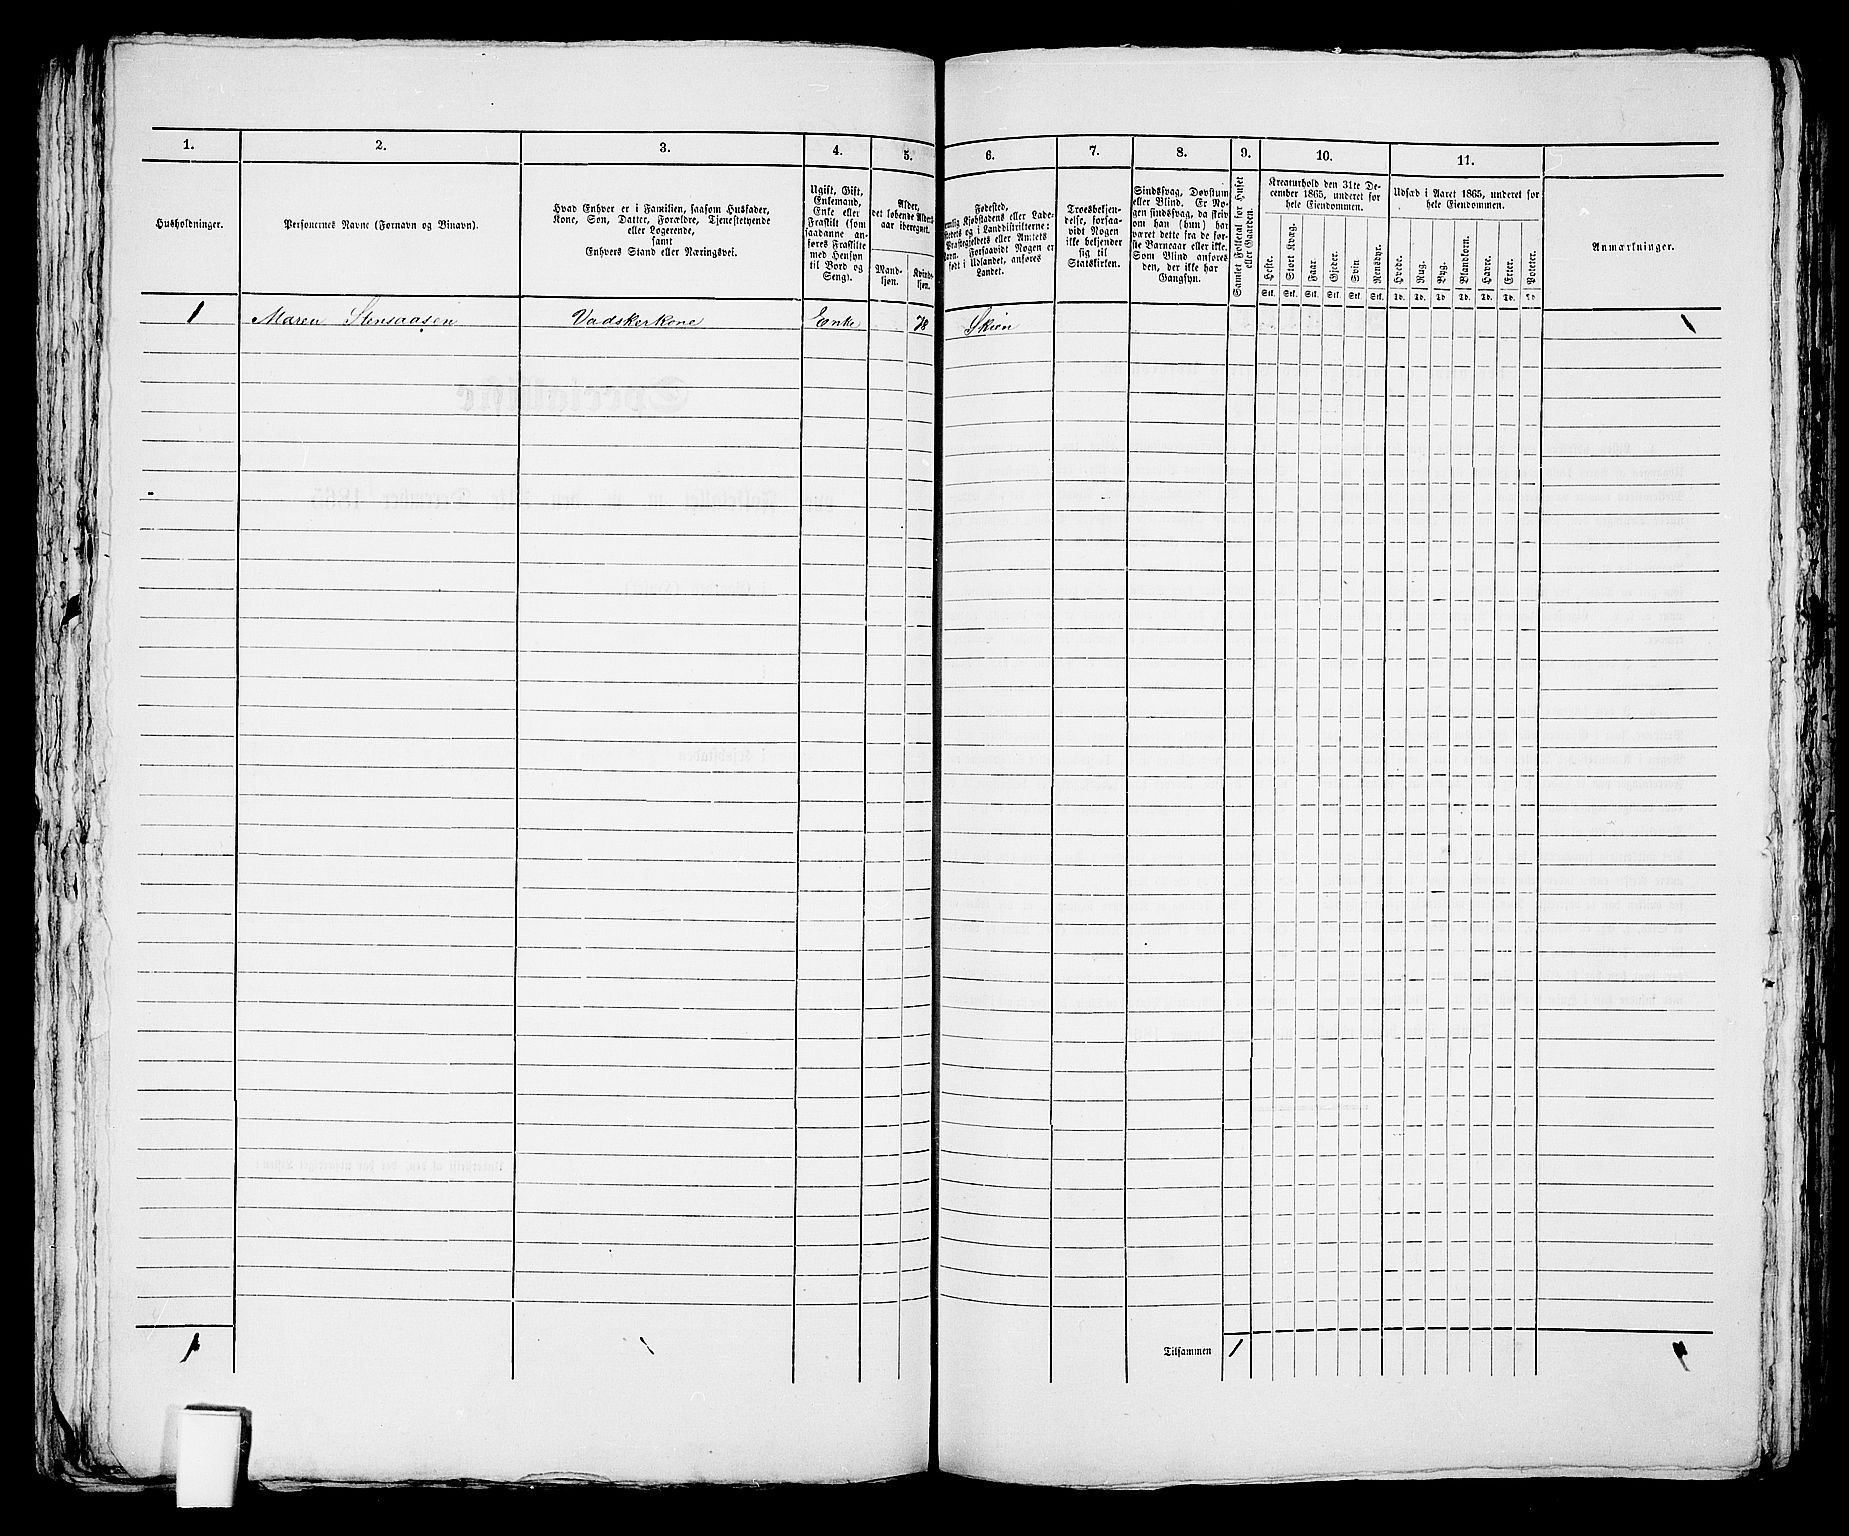 1. 2. 3. 4. 5. 6. 7. 8. 9. 10. 11.
Husholdninger.
Personernes Navne (Fornavn og Binavn).
Hvad Enhver er i Familien, saasom Husfader,
Kone, Søn, Datter, Forældre, Tjenestetyende
eller Logerende,
samt
Enhvers Stand eller Næringsvei.
Ugift, Gift,
Enkemand,
Enke eller
Fraskilt (som
saadanne an-
føres Fraskilte
med Hensyn
til Bord og
Seng).
Alder,
det løbende Alders-
aar iberegnet.
Mand-
kjøn.
Kvind-
kjøn.
Fødested,
Kjøbstadens eller Lade-
og i Landdistrikterne:
Præstegjeldets eller Amtets
Navn. Forsaavidt Nogen er
født i Udlandet, anføres
Landet.
Troesbekjen-
delse, forsaa-
vidt Nogen
ikke bekjender
sig til
Statskirken.
Sindssvag, Døvstum
eller Blind. Er No-
gen sindssvag, da skriv
om han (hun) har
været dette fra de før-
ste Barneaar eller ikke.
Som Blind anføres
den, der ikke har
Gangsyn.
Samlet Folketal for Huset
eller Gaarden.
Kreaturhold den 31te De-
cember 1865, underet for
hele Eiendommen.
Heste.
Stort Kvæg.
Faar.
Gjeder.
Svin
Rensdyr.
Stk. Stk. Stk. Stk. Stk. Stk.
Udsæd i Aaret 1865, underet for
hele Eiendommen.
Hvede.
Rug.
Byg.
Blandkorn.
Havre.
Erter.
Poteter.
Td. Td. Td Td. Td. Td. Td
Anmærkninger.
1 Maren Stensaasen Vadskerkone Enke 78 Skien 1
1 Tilsammen 1